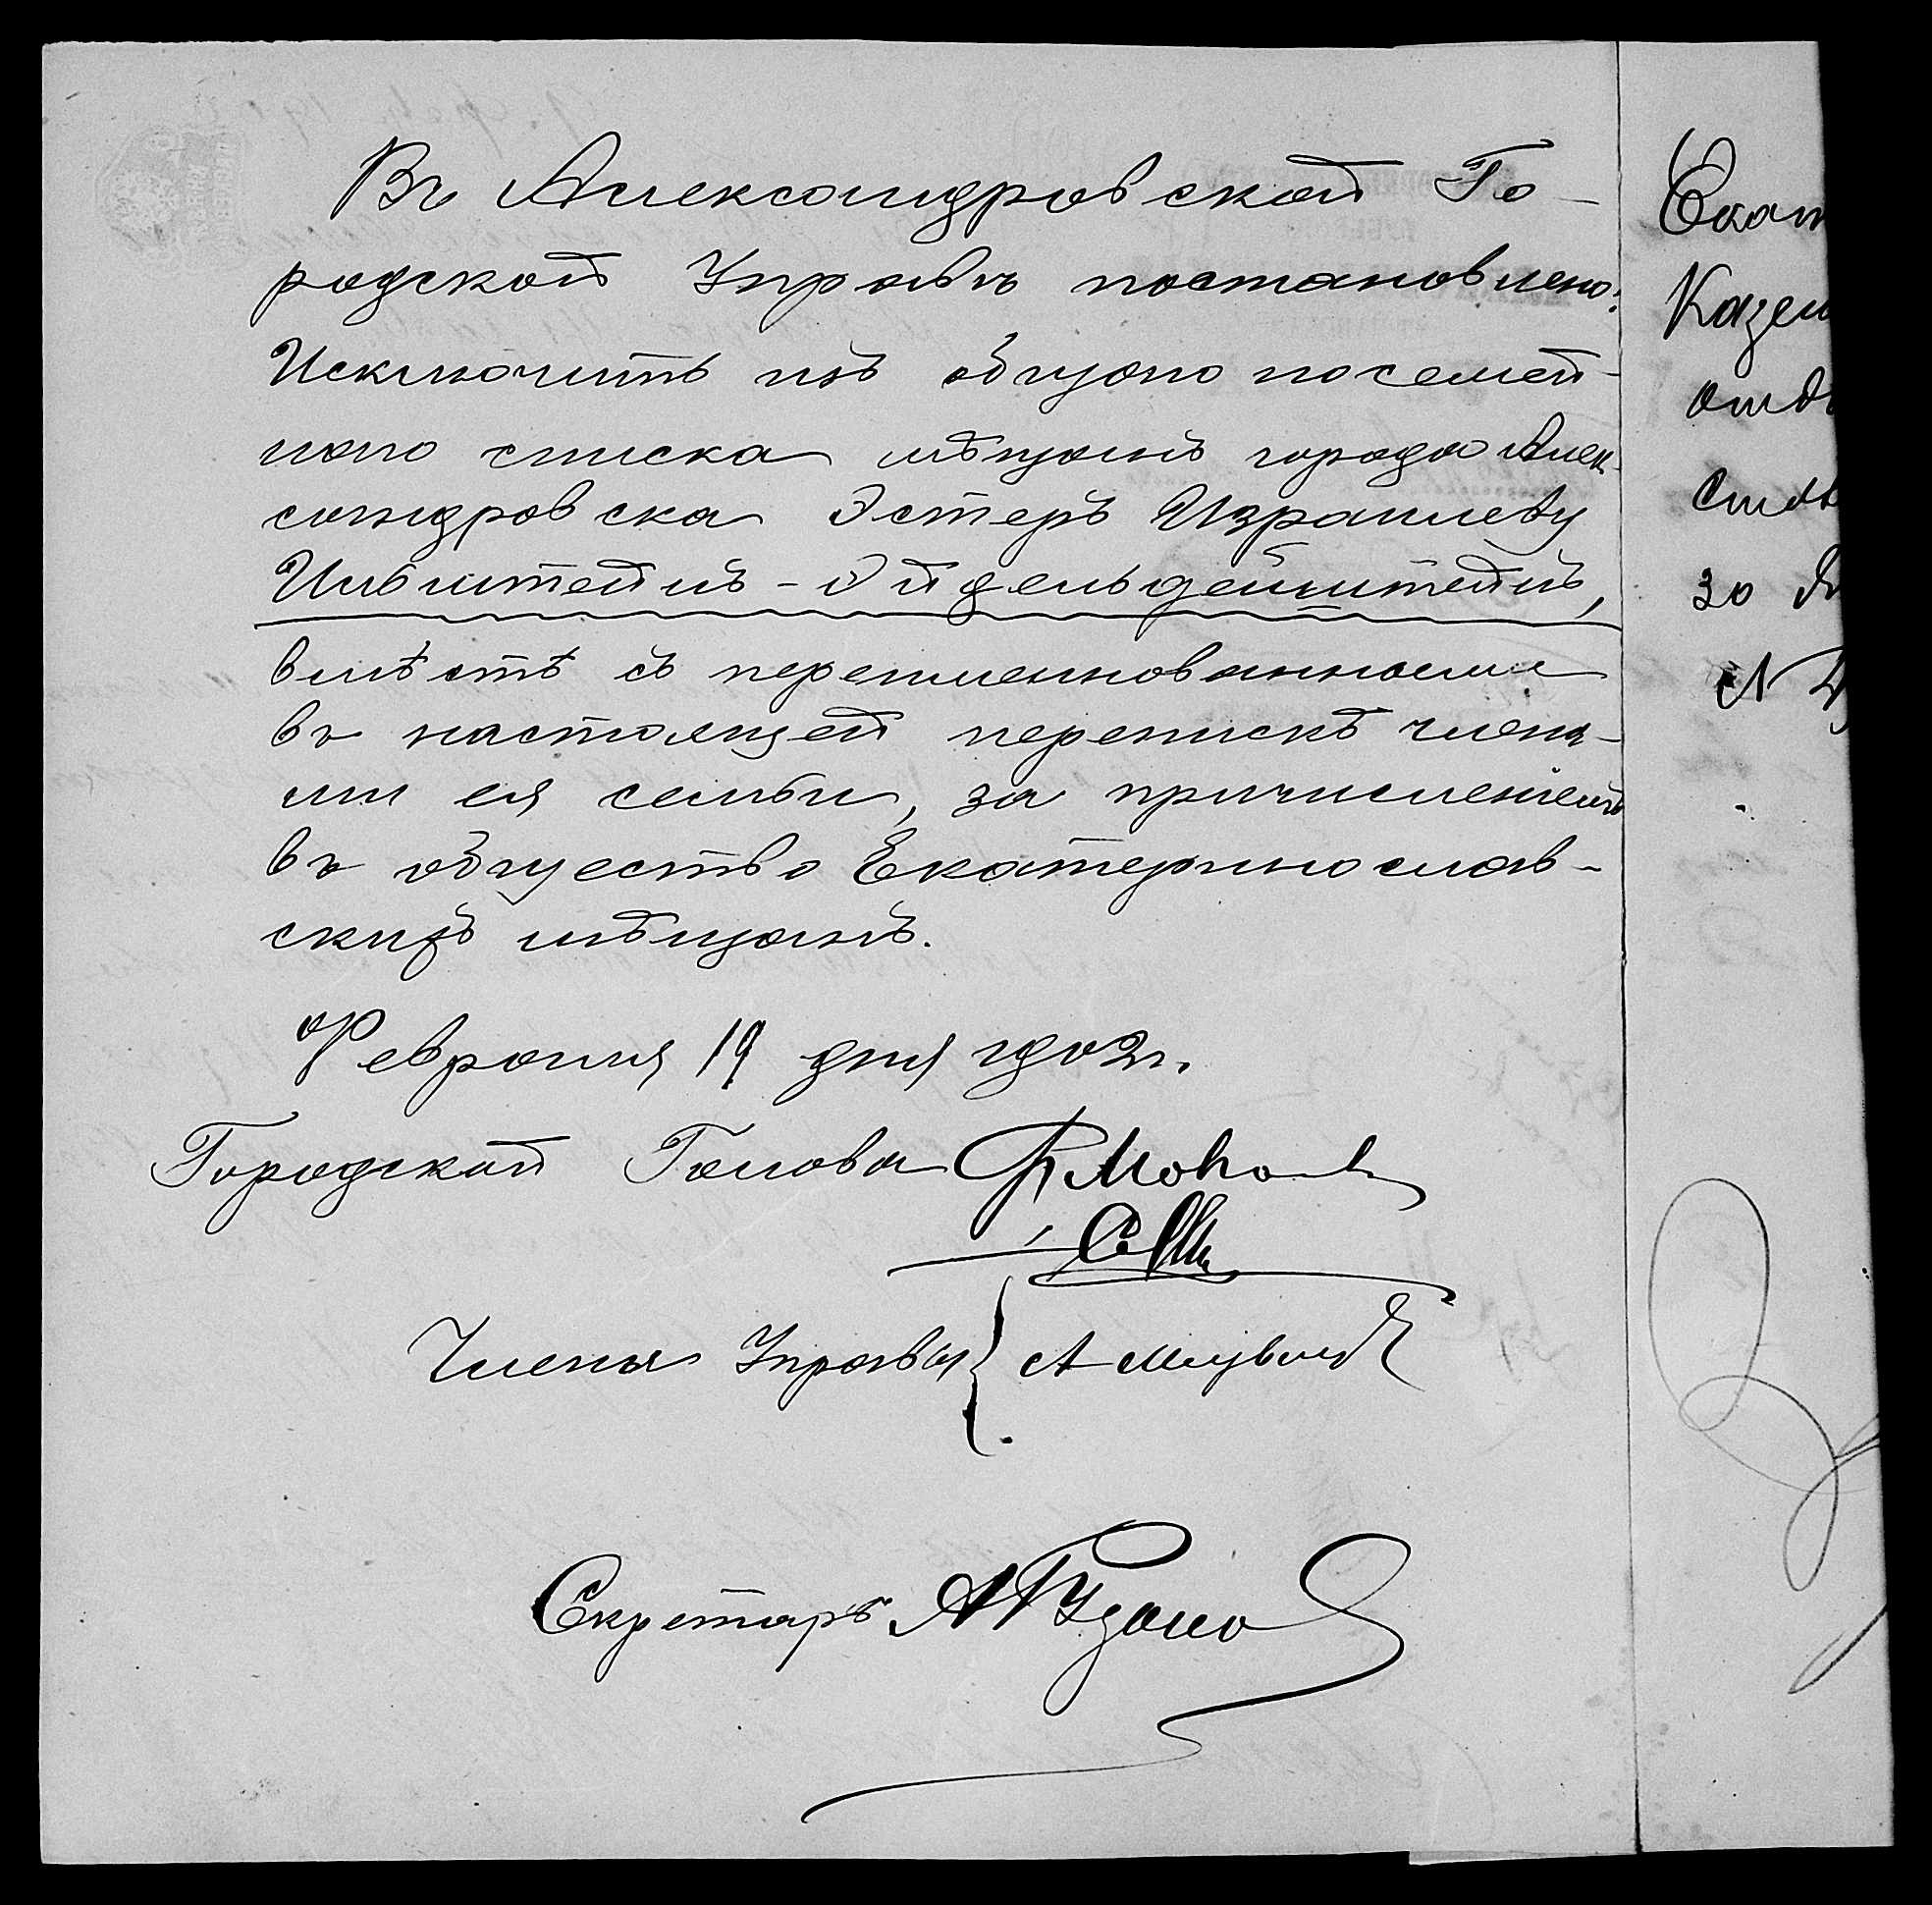 Въ Александровской Го-
родской Управѣ постановлено:
Исключить изъ общаго посемей-
наго списка мѣщанъ города Алек-
сандровска Эстеръ Израилеву
Ицъ Эйдельдейнштейнъ,
вмѣстѣ съ переименованными
въ настоящей перепискѣ члена-
ми ея семьи, за причисленіемъ
въ общество Екатеринослав-
скихъ мѣщанъ.
Февраля 19 дня 1902 г.
Городской Голова Ф Мов
Члены Управы А
Секретарь А
Екат
Казен
отдѣ
столъ
30 Ян
N